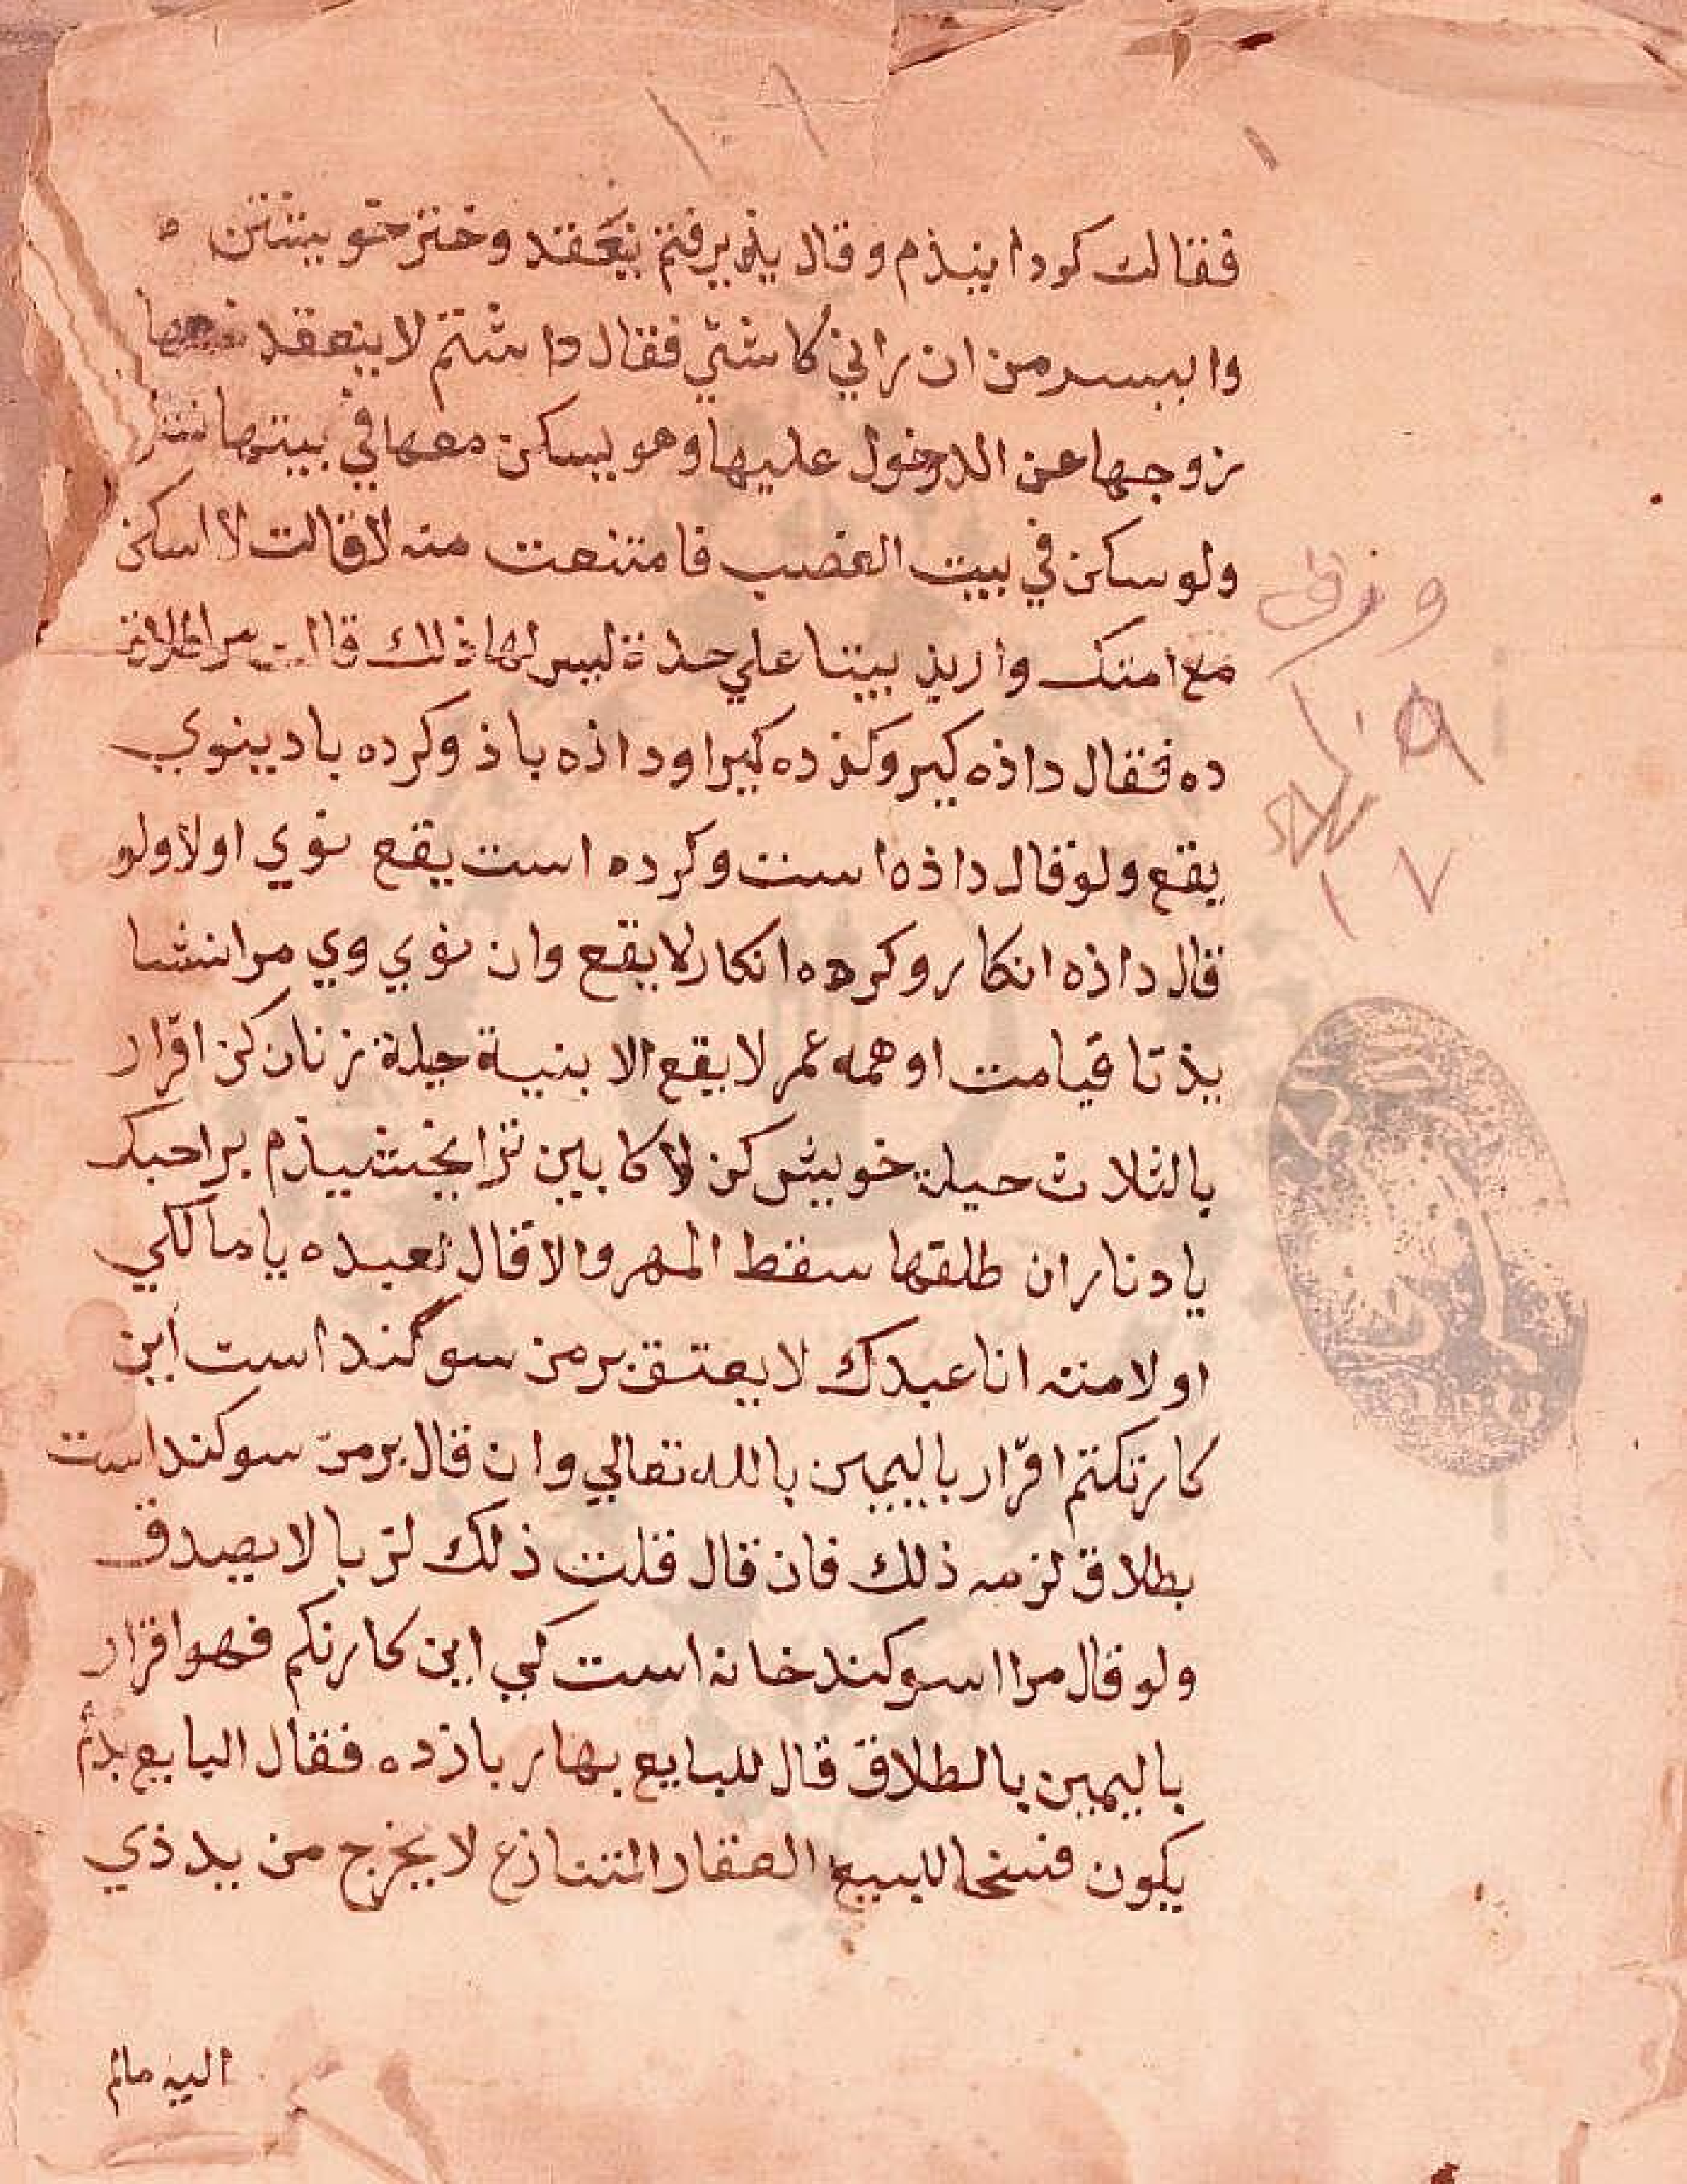 فقالت كردانيذم وقال پذيرفتم ينعقد وختر خويشتن
وا ببسر من ان راني كاشتي فقال داشتم لا ينعقد منعها
زوجها عن الدخول عليها وهو يسكن معها في بيتها نشز
ولو سكن في بيت الغصب فامتنعت منه لا قالت لا اسكن
مع امتك واريد بيتا علي حدة ليس لها ذلك قالت مرا طلاق
ده فقال داذه كير وكرده كيرا وداذه باذ وكرده باد ينوي
يقع ولو قال داذه است وكرده است يقع نوي اولا ولو
قال داذه انكار وكرده انكار لا يقع وان نوي وي مرا نشا
يذ تا قيامت او همه عمر لا يقع الا بنية حيلة زنان كن اقرار
بالثلاث حيلة خويش كن لا كابين ترا بخشيذم براحبك
يا دنار ان طلقها سقط المهر والا قال لعبده يا مالكي
او لامته انا عبدك لا يعتق بر من سوكند است اين
كار نكنم اقرار باليمين بالله تعالي وان قال بر من سوكند است
بطلاق لزمه ذلك فان قال قلت ذلك لزبا لا يصدق
ولو قال مرا سوكند خانه است كي اين كار نكم فهو اقرار
باليمين بالطلاق قال للبايع بهار باز ده فقال البايع بدم
يكون فسخا للبيع العقار المتنازع لا يخرج من يد ذي
اليد مالم
ورق
١٠٩
١٠٧